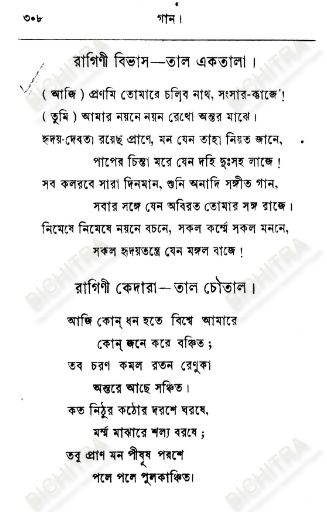 ৩০৮ গান।
রাগিণী বিভাস—তাল একতালা।
( আজি ) প্রণমি তোমারে চলিব নাথ, সংসার-কাজে!
( তুমি ) আমার নয়নে নয়ন রেখো অন্তর মাঝে।
হৃদয়-দেবতা রয়েছ প্রাণে, মন যেন তাহা নিয়ত জানে,
পাপের চিন্তা মরে যেন দহি দুঃসহ লাজে!
সব কলরবে সারা দিনমান, শুনি অনাদি সঙ্গীত গান,
সবার সঙ্গে যেন অবিরত তোমার সঙ্গ রাজে।
নিমেষে নিমেষে নয়নে বচনে, সকল কর্ম্মে সকল মননে,
সকল হৃদয়তন্ত্রে যেন মঙ্গল বাজে!
রাগিণী কেদারা—তাল চৌতাল।
আজি কোন্ ধন হতে বিশ্বে আমারে
কোন্ জনে করে বঞ্চিত;
তব চরণ কমল রতন রেণুকা
অন্তরে আছে সঞ্চিত।
কত নিঠুর কঠোর দরশে ঘরষে,
মর্ম্ম মাঝারে শল্য বরষে;
তবু প্রাণ মন পীযূষ পরশে
পলে পলে পুলকাঞ্চিত।
BICHITRA
BICHITRA
BICHITRA
BICHITRA
BICHITRA
BICHITRA